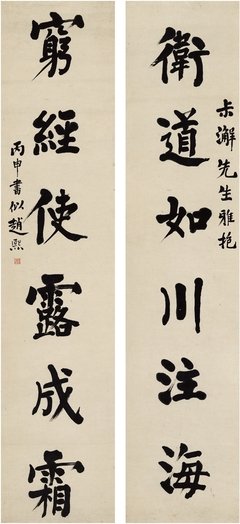 未澥先生雅抱
衛道如川注海
窮經使露成霜
丙申書似趙熙